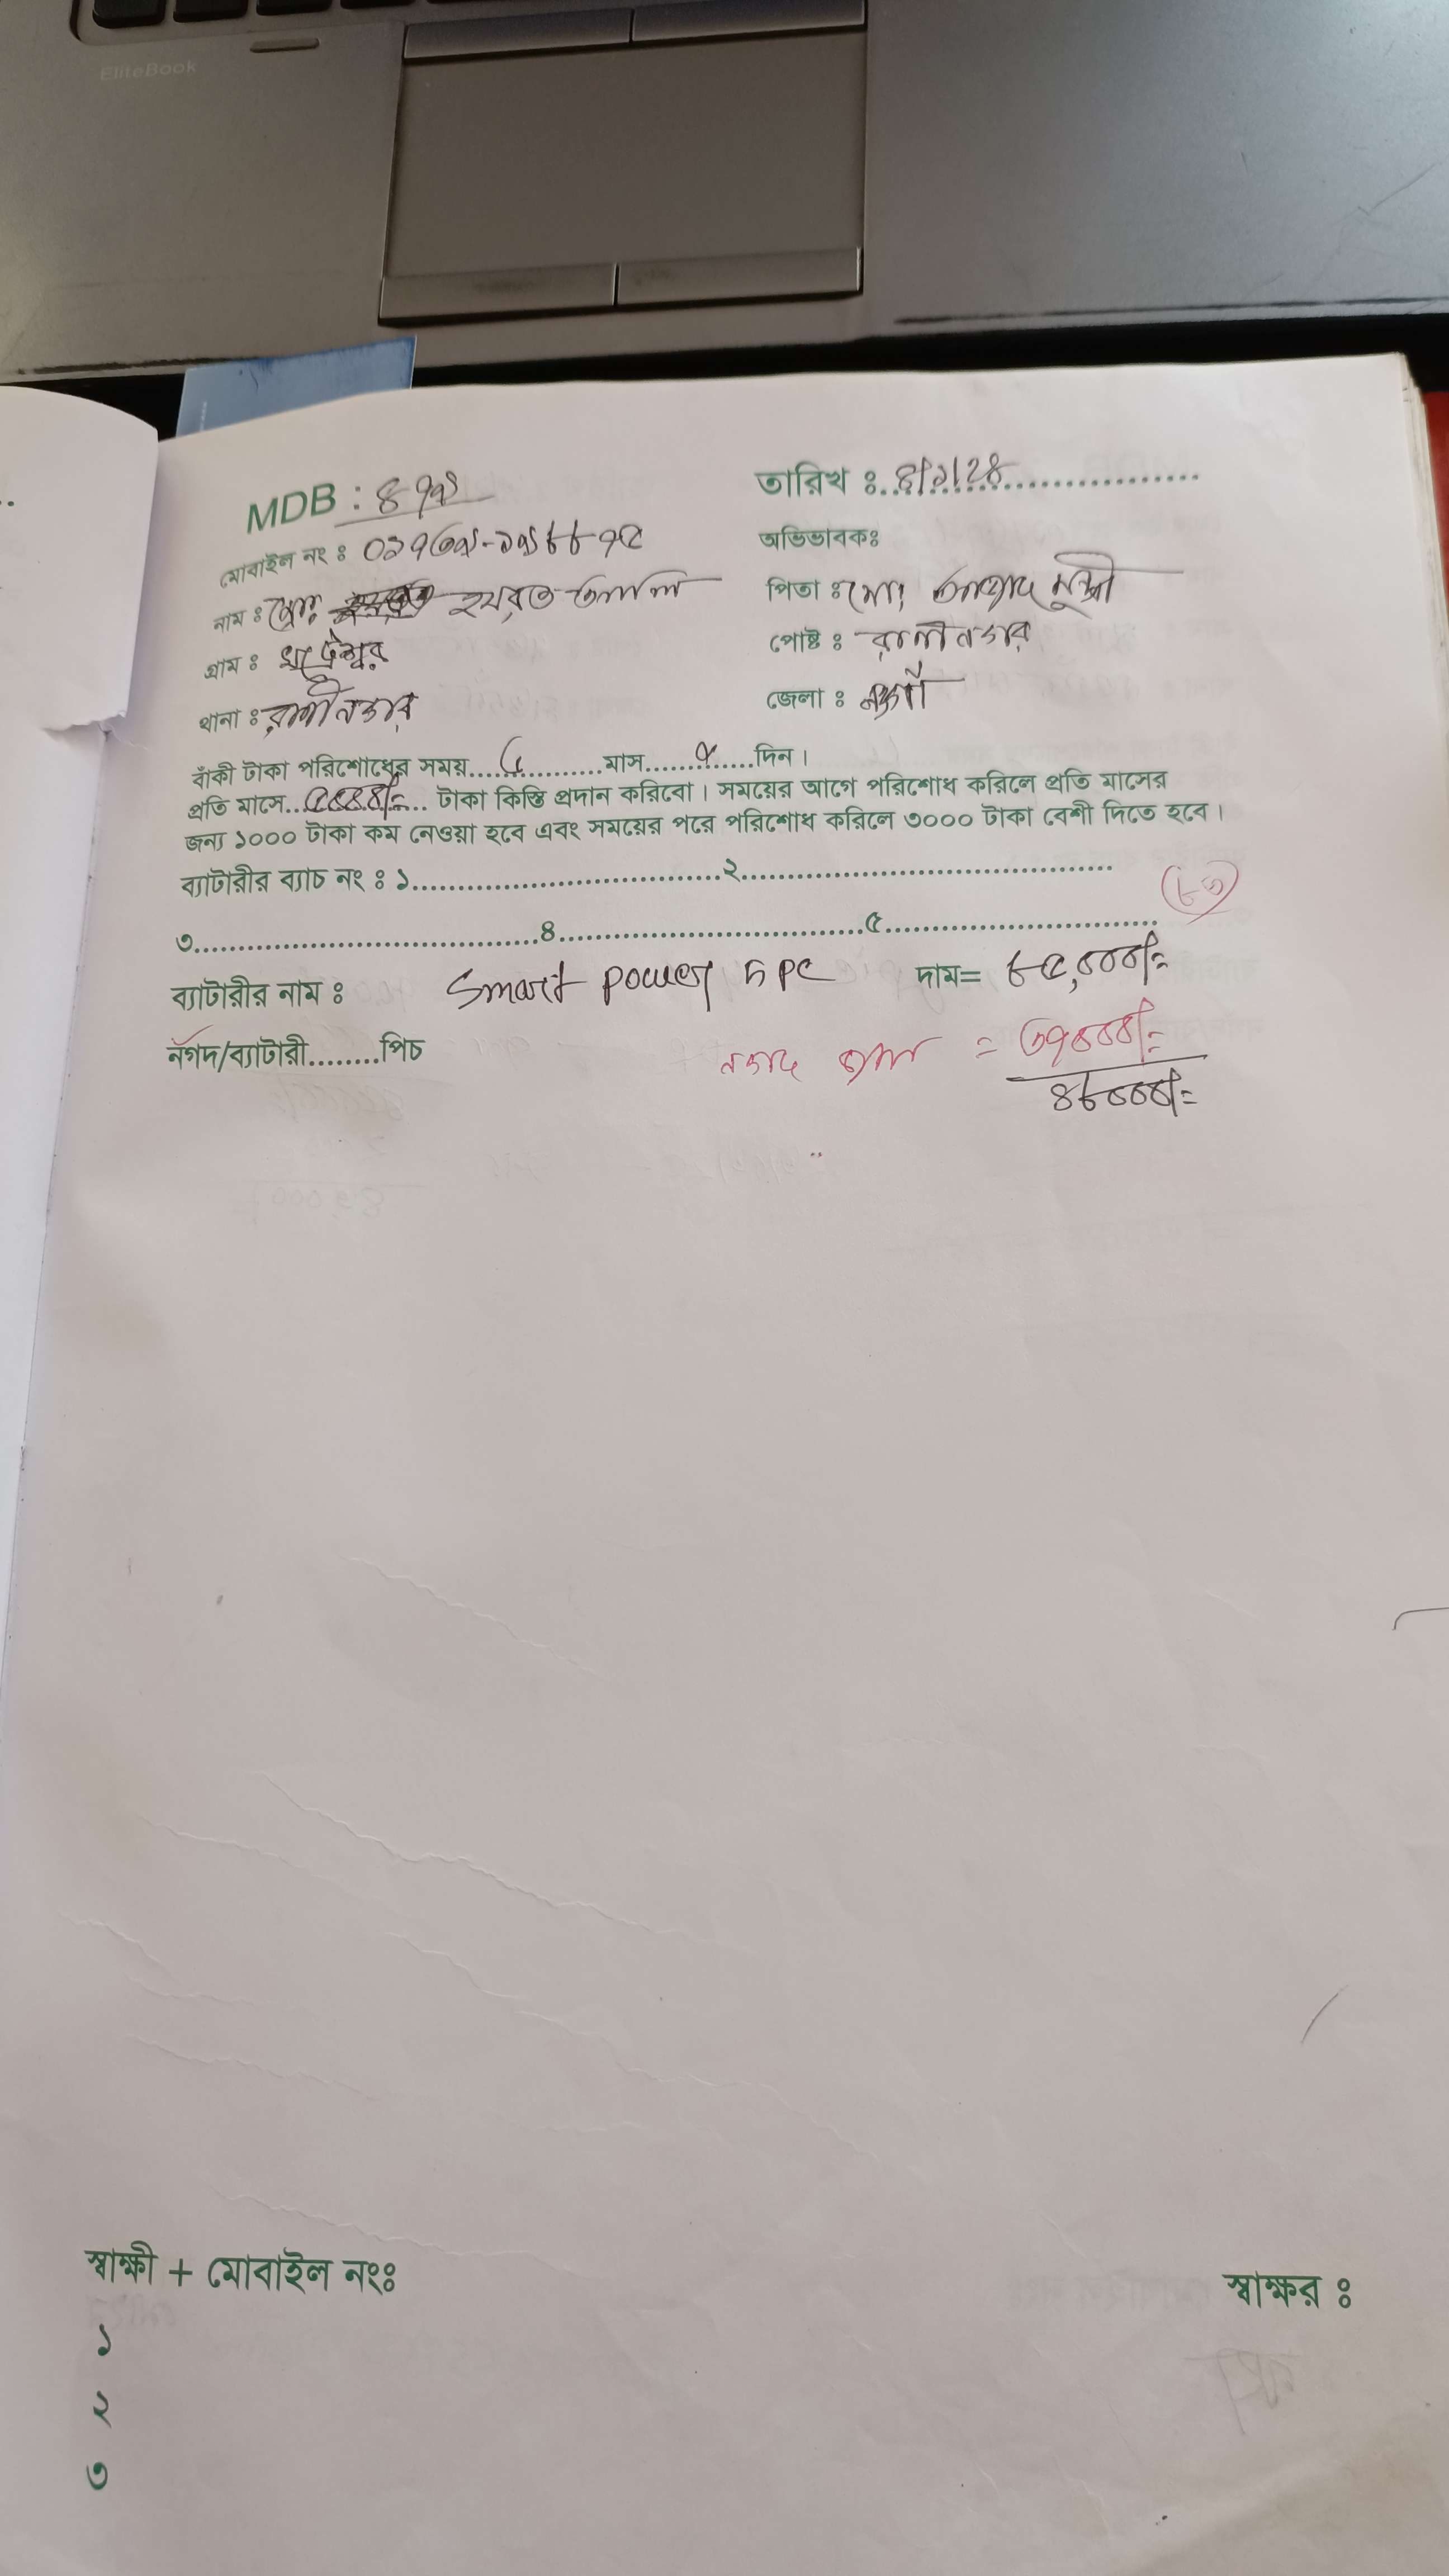 EliteBook
MDB : ৪৭৯
তারিখ ঃ ৪/১/২৪
মোবাইল নং ঃ ০১৭৩৯-১৯৮৮৭৫
অভিভাবকঃ
নাম ঃ মোঃ হযরত আলি
পিতা ঃ মোঃ মুন্সী
গ্রাম ঃ খট্টেশ্বর
পোষ্ট ঃ রাণীনগর
থানা ঃ রাণীনগর
জেলা ঃ নওগাঁ
বাঁকী টাকা পরিশোধের সময়..................মাস............দিন।
প্রতি মাসে..৫০০০/=.. টাকা কিস্তি প্রদান করিবো। সময়ের আগে পরিশোধ করিলে প্রতি মাসের
জন্য ১০০০ টাকা কম নেওয়া হবে এবং সময়ের পরে পরিশোধ করিলে ৩০০০ টাকা বেশী দিতে হবে।
ব্যাটারীর ব্যাচ নং ঃ ১..................................২..........................................
৮৩
৩......................................৪..................................৫..............................
ব্যাটারীর নাম ঃ Smart power 5 pc দাম= ৮৫,০০০/=
নগদ/ব্যাটারী........পিচ নগদ জমা = ৩৭০০০/=
৪৮০০০/=
স্বাক্ষী + মোবাইল নংঃ
স্বাক্ষর ঃ
১
২
৩